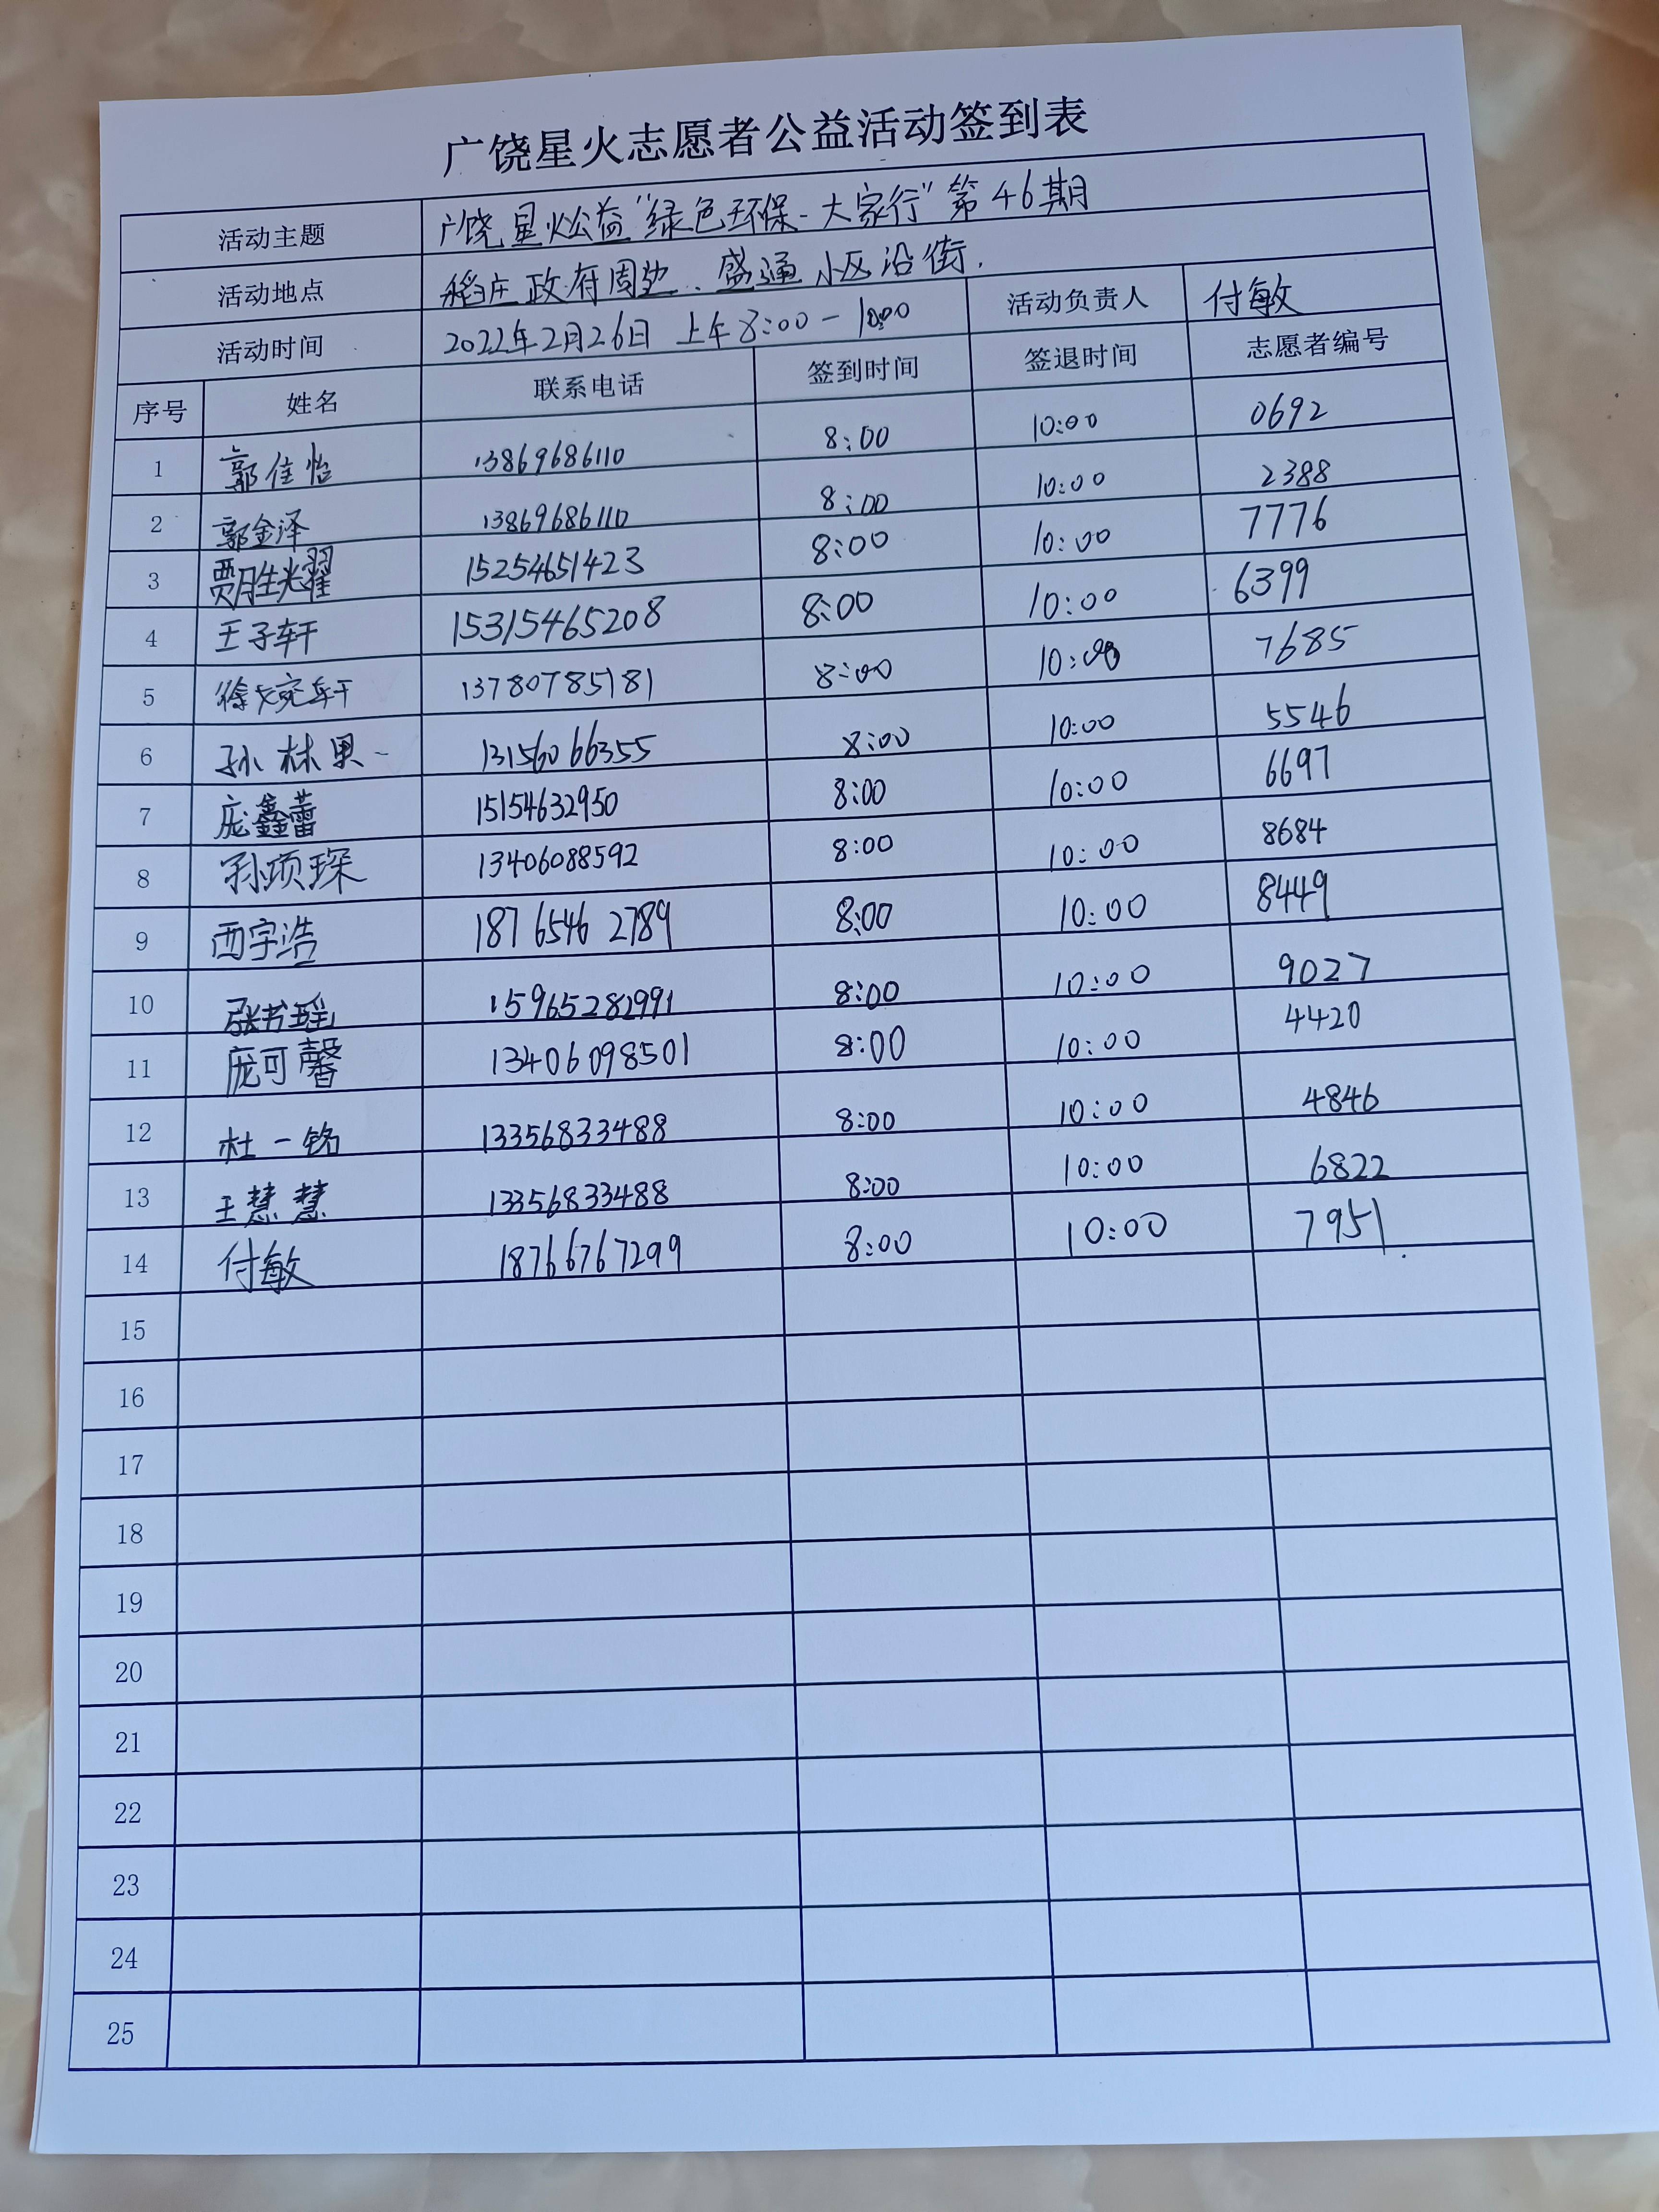 广饶星火志愿者公益活动签到表
活动主题 广饶星火公益"绿色环保-大家行"第46期
活动地点 稻庄政府周边、盛通小区沿街.
活动时间 2022年2月26日 上午8:00-10:00 活动负责人 付敏
序号 姓名 联系电话 签到时间 签退时间 志愿者编号
1 郭佳怡 13869686110 8:00 10:00 0692
2 郭金泽 13869686110 8:00 10:00 2388
3 贾胜耀 15254651423 8:00 10:00 7776
4 王子轩 15315465208 8:00 10:00 6399
5 徐 轩 13780785181 8:00 10:00 7685
6 孙林果 13156066355 8:00 10:00 5546
7 庞鑫蕾 15154632950 8:00 10:00 6697
8 孙项琛 13406088592 8:00 10:00 8684
9 西宇浩 18765462789 8:00 10:00 8449
10 张书瑶 15965282991 8:00 10:00 9027
11 庞可馨 13406098501 8:00 10:00 4420
12 杜一铭 13356833488 8:00 10:00 4846
13 王慧慧 13356833488 8:00 10:00 6822
14 付敏 18766767299 8:00 10:00 7951
15
16
17
18
19
20
21
22
23
24
25